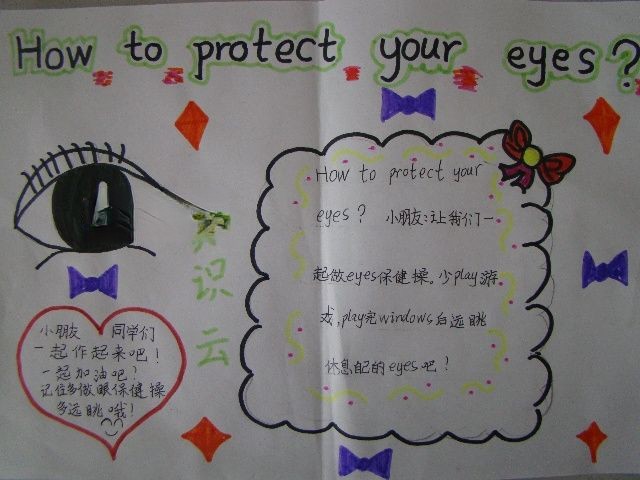 How to protect your eyes?
How to protect your
eyes? 小朋友:让我们一
起做eyes保健操。少play游
戏,play完windows后远眺
休息自己的eyes吧!
识
云
小朋友 同学们
一起作起来吧!
一起加油吧?
记住多做眼保健操
多远眺哦!